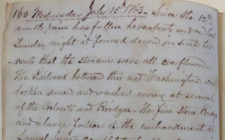 160 Wednesday July 15th 1863. Since the 12th
much rain has fallen hereabouts and on
Sunday night it poured down in such torr
ents that the streams were all overflown.
The Railroad between this and Washington was
broken down and washed away at several
of the Culverts and Bridges. The fine Stone Bridge
and a large portion of the embankment at
Laurel